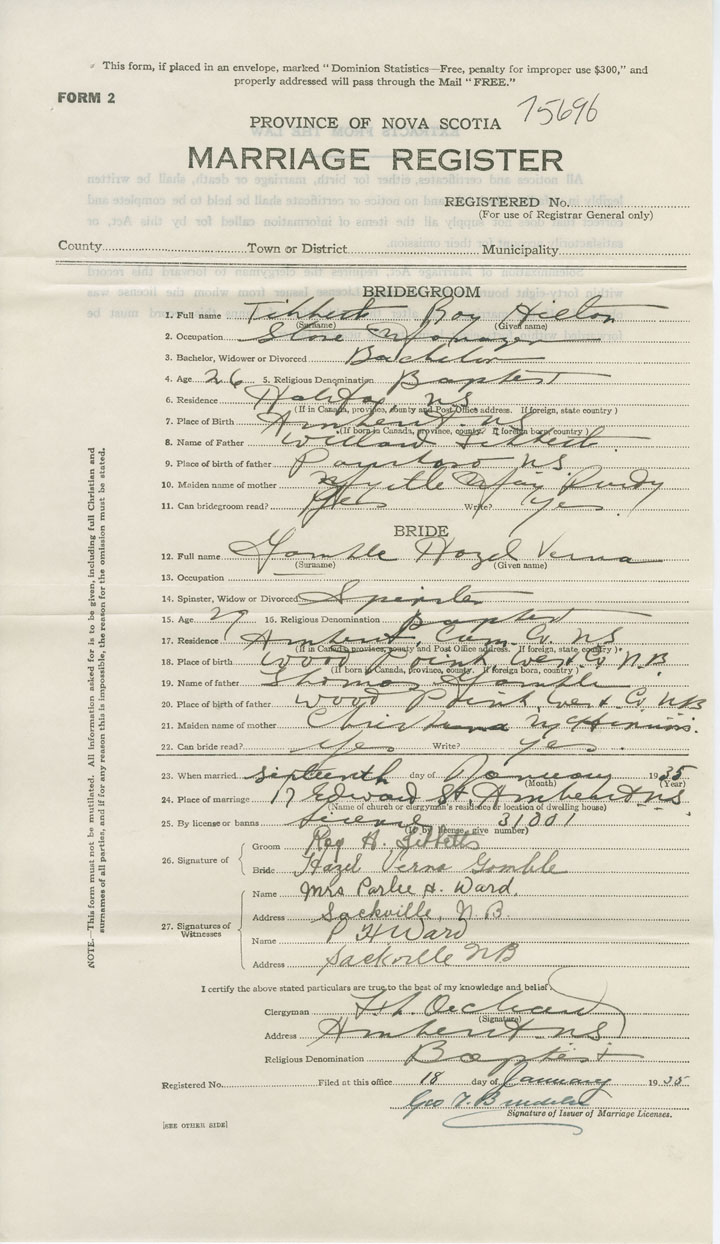 This form, if placed in an envelope, marked "Dominion Statistics—Free, penalty for improper use $300," and
properly addressed will pass through the Mail "FREE."
FORM 2
75696
PROVINCE OF NOVA SCOTIA
MARRIAGE REGISTER
REGISTERED No.
(For use of Registrar General only)
County Town or District Municipality
BRIDEGROOM
1. Full name Tibbett Roy Hilton
(Surname) (Given name)
2. Occupation Store Manager
3. Bachelor, Widower or Divorced Bachelor
4. Age 26 5. Religious Denomination Baptist
6. Residence Halifax, NS
(If in Canada, province, county and Post Office address. If foreign, state country)
7. Place of Birth Amherst NS
(If born in Canada, province, county. If foreign born, country)
8. Name of Father Willard Tibbett
9. Place of birth of father NS
10. Maiden name of mother Myrtle May Purdy
11. Can bridegroom read? Yes Write? Yes
BRIDE
12. Full name Gamble Hazel Verna
(Surname) (Given name)
13. Occupation
14. Spinster, Widow or Divorced Spinster
15. Age 27 16. Religious Denomination Baptist
17. Residence Amherst, Cum. Co. NS
(If in Canada, province, county and Post Office address. If foreign, state country)
18. Place of birth Wood Point West. Co N.B
(If born in Canada, province, county. If foreign born, country)
19. Name of father Thomas Gamble
20. Place of birth of father Wood Point, West Co NB
21. Maiden name of mother Christiana
22. Can bride read? Yes Write? Yes
23. When married day of January 1935
(Month) (Year)
24. Place of marriage 17 Edward St. Amherst NS
(Name of church or clergyman's residence or location of dwelling house)
25. By license or banns license 31001
(If by license, give number)
26. Signature of
Groom Roy H. Tibbetts
Bride Hazel Verna Gamble
27. Signatures of Witnesses
Name Mrs Parlee H. Ward,
Address Sackville, N.B.
Name P H Ward
Address Sackville NB
I certify the above stated particulars are true to the best of my knowledge and belief.
Clergyman
(Signature)
Address Amherst NS
Religious Denomination Baptist
Registered No. Filed at this office 18 day of January 1935
Geo T.
Signature of Issuer of Marriage Licenses.
[SEE OTHER SIDE]
NOTE.—This form must not be mutilated. All information asked for is to be given, including full Christian and
surnames of all parties, and if for any reason this is impossible, the reason for the omission must be stated.